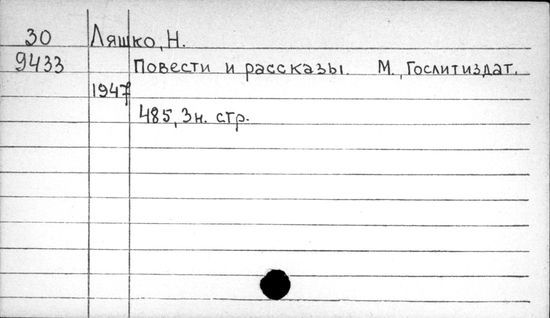 30 Ляшко, Н.
9433 Повести и рассказы. М., Гослитиздат.
1947
485, 3 н. стр.